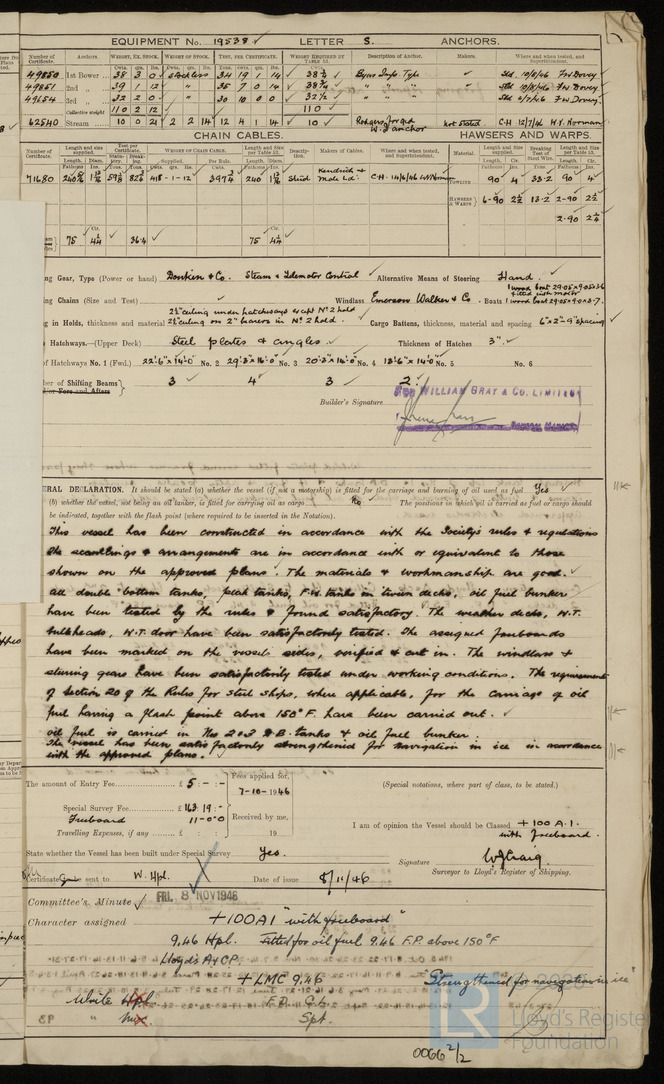 EQUIPMENT No. 19538 ✓ LETTER S. ANCHORS.
Number of Certificate. Anchors. WEIGHT, EX. STOCK. WEIGHT OF STOCK. TEST, PER CERTIFICATE. WEIGHT REQUIRED BY TABLE 53. Description of Anchor. Makers. Where and when tested, and Superintendent.
49850 1st Bower 38 3 0 Stockless 34 19 1 14 38½ ✓ Byers Impd. Type ✓ Sld. 10/8/46 F.W. Dovey
49851 2nd „ 39 1 12 „ 35 7 0 14 38¾ „ „ „ Sld. 10/8/46 F.W. Dovey
49654 3rd „ 32 2 0 „ 30 10 0 0 32½ „ „ „ Sld. 4/7/46 F.W. Dovey
Collective weight 110 2 12 110 ✓
62540 Stream 10 0 21 2 2 14 12 4 1 14 10 Rodgers forged W.I. anchor not stated C-H 12/7/46 H.Y. Norman
CHAIN CABLES. HAWSERS AND WARPS.
Number of Certificate. Length and size supplied. Test per Certificate. WEIGHT OF CHAIN CABLE. Length and size per Table 53. Description. Makers of Cables. Where and when tested, and Superintendent. Material. Length and size supplied. Breaking Test of Steel Wire. Length and size per Table 53.
71680 240 1 13/16 418-1-12 397¾ 240 1 13/16 Stud Kendrick & Mole Ld. C-H. 14/6/46 TOWLINE 90 4 33.2 90 4
HAWSERS & WARPS 6-90 2½ 13.2 2-90 2½
2-90 2¼
75 4¼ ✓ 36.4 75 4¼
ng Gear, Type (Power or hand) Donkin & Co. Steam & Telemotor Control ✓ Alternative Means of Steering Hand.
ng Chains (Size and Test) ✓ Windlass Emerson Walker & Co. Boats 1 wood boat
fitted with motor
1 wood boat
2½" ceiling under hatchways except No 2 hold
ng in Holds, thickness and material 2½" ceiling on 2" bearers in No 2 hold. Cargo Battens, thickness, material and spacing 6"x2"-9" spacing
Hatchways.—(Upper Deck) Steel plates & angles ✓ Thickness of Hatches 3". ✓
of Hatchways No. 1 (Fwd.) 22'6"x14'0" No. 2 29'3"x16'0" No. 3 20'3"x16'0" No. 4 18'6"x14'0" No. 5 No. 6
ber of Shifting Beams 3 ✓ 4 ✓ 3 ✓ 2 ✓
d/or Fore and Afters
FOR WILLIAM GRAY & CO. LIMITED
Builder's Signature
ERAL DECLARATION. It should be stated (a) whether the vessel (if not a motorship) is fitted for the carriage and burning of oil used as fuel Yes ✓
(b) whether the vessel, not being an oil tanker, is fitted for carrying oil as cargo No ✓ The positions in which oil is carried as fuel or cargo should
be indicated, together with the flash point (where required to be inserted in the Notation).
This vessel has been constructed in accordance with the Society's rules & regulations
The scantlings & arrangements are in accordance with or equivalent to those
shown on the approved plans. The materials & workmanship are good.
all double bottom tanks, peak tanks, F.W. tanks in tween decks, oil fuel bunker
have been tested by the rules & found satisfactory. The weather decks, W.T.
bulkheads, W.T. door have been satisfactorily tested. The assigned freeboards
have been marked on the vessels sides, verified & cut in. The windlass &
steering gears have been satisfactorily tested under working conditions. The requirements
of Section 20 of the Rules for Steel Ships, where applicable, for the carriage of oil
fuel having a flash point above 150°F. have been carried out. ✓
oil fuel is carried in Nos 2 & 3 D.B. tanks & oil fuel bunker.
The vessel has been satisfactorily strengthened for navigation in ice in accordance
with the approved plans.
The amount of Entry Fee £ 5 : - : - Fees applied for, (Special notations, where part of class, to be stated.)
7-10-1946
Special Survey Fee £ 163 : 19 : -
Freeboard 11-0-0 Received by me,
I am of opinion the Vessel should be Classed + 100 A.1. with freeboard.
Travelling Expenses, if any £ : : 19
State whether the Vessel has been built under Special Survey Yes.
Signature W.J. Craig
Surveyor to Lloyd's Register of Shipping.
Certificate sent to W. Hpl. Date of issue 8/11/46
Committee's Minute ✓ FRI. 8 NOV 1946
Character assigned +100A1 "with freeboard"
9.46 Hpl. Fitted for oil fuel 9.46 F.P. above 150°F
Lloyd's A & CP.
+LMC 9.46 Strengthened for navigation in ice
Write Hpl F.D. C.L.
„ Spt.
Lloyd's Register
Foundation
0066 2/2